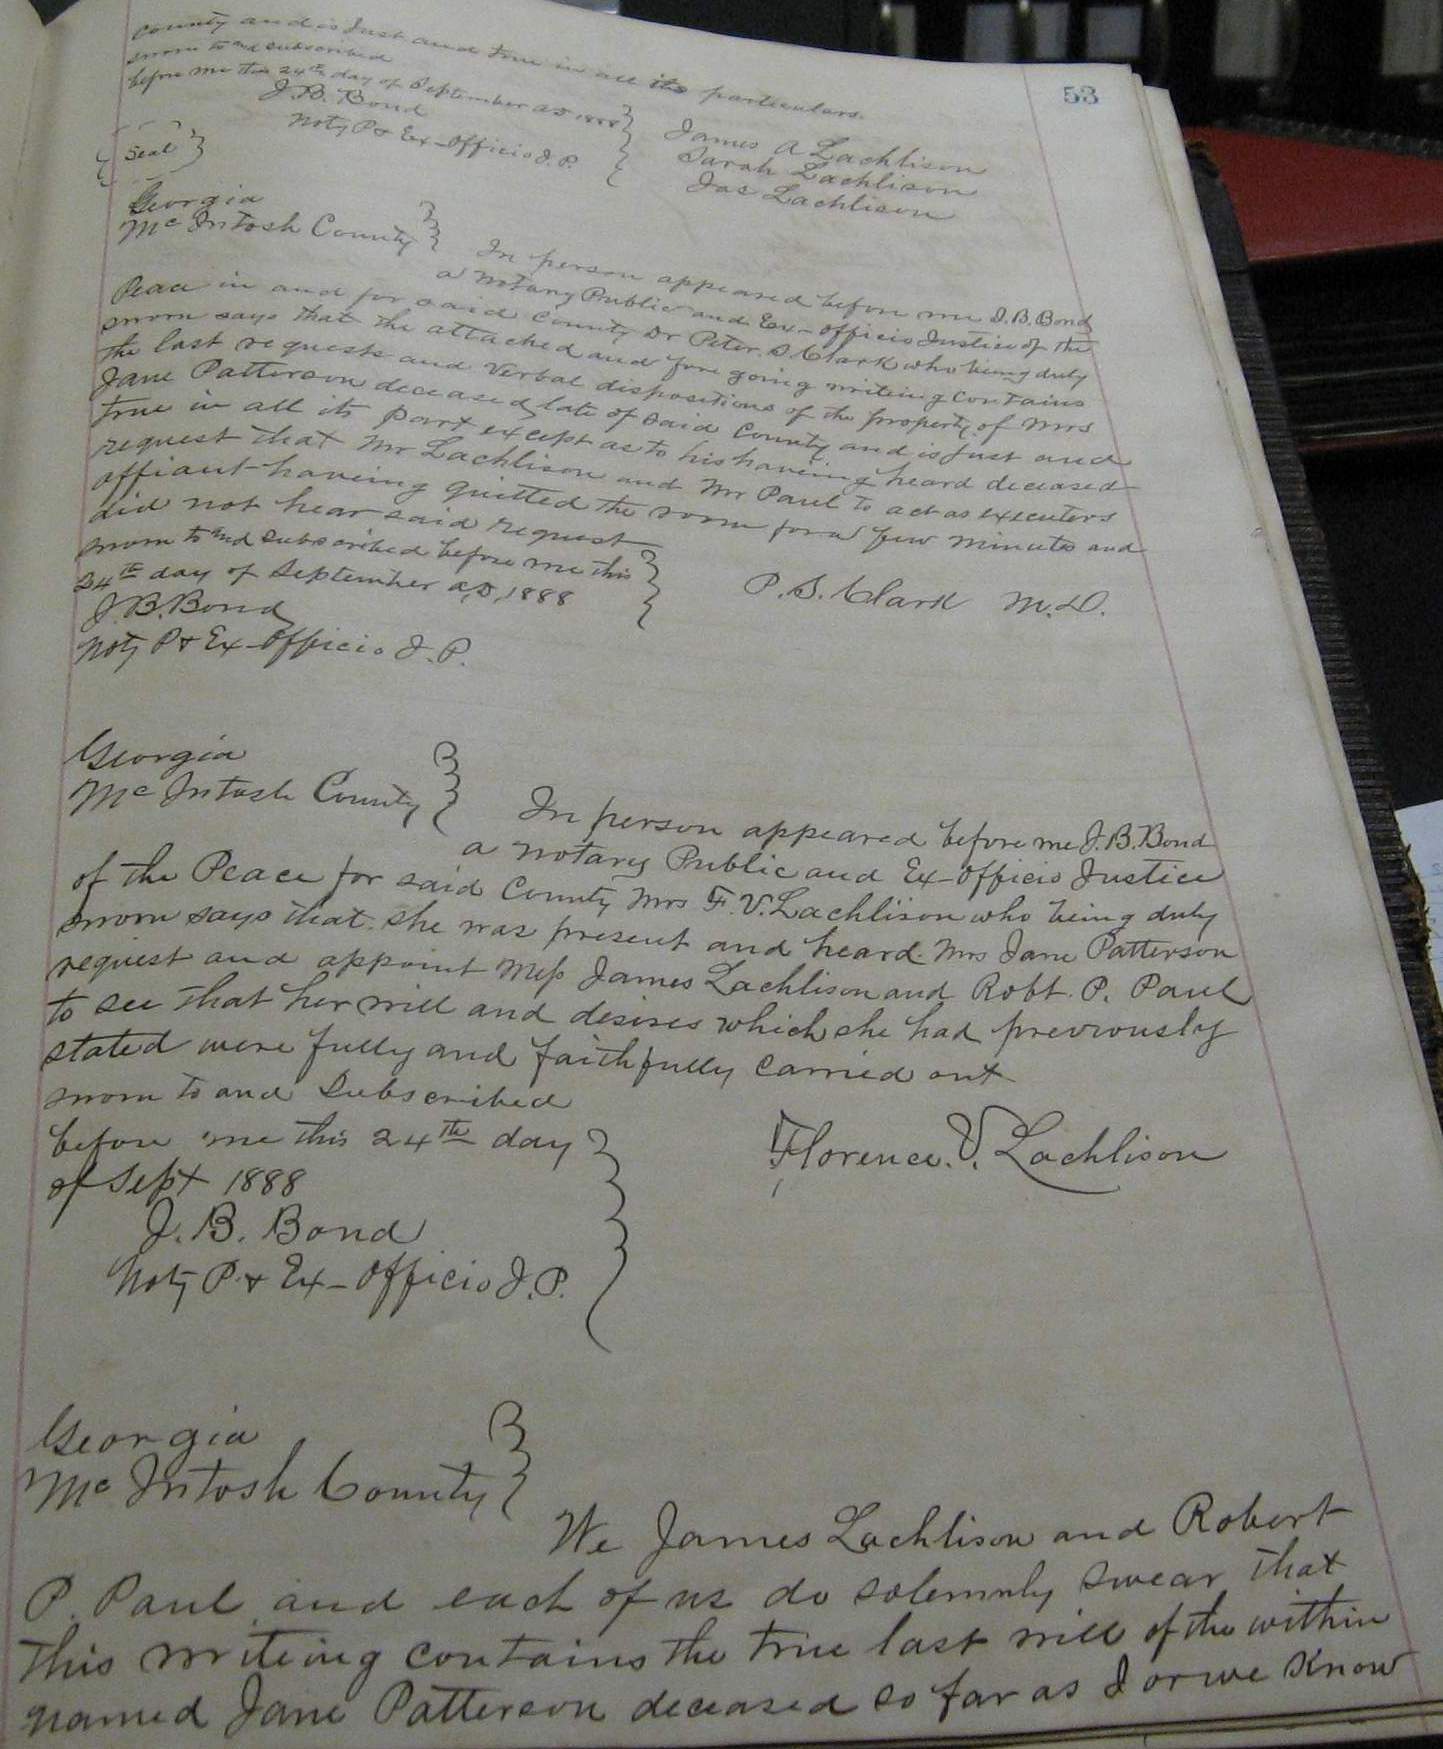 53
County and is Just and true in all its particulars.
sworn to and subscribed
before me this 24th day of September AD 1888
J. B. Bond
Noty P & Ex-Officio J. P.
Seal
James A Lachlison
Sarah Lachlison
Jas Lachlison
Georgia
McIntosh County
In person appeared before me J. B. Bond
a Notary Public and Ex-Officio Justice of the
Peace in and for said County Dr Peter S. Clark who being duly
sworn says that the attached and fore going writing contains
the last requests and Verbal dispositions of the property of Mrs
Jane Patterson deceased, late of said County and is just and
true in all its part except as to his having heard deceased
request that Mr Lachlison and Mr Paul to act as executors
affiant having quitted the room for a few minutes and
did not hear said request
sworn to and subscribed before me this
24th day of September A.D, 1888
J. B. Bond
Noty P & Ex-Officio J. P.
P. S. Clark M.D.
Georgia
McIntosh County
In person appeared before me J. B. Bond
a Notary Public and Ex-Officio Justice
of the Peace for said County Mrs F. V. Lachlison who being duly
sworn says that she was present and heard Mrs Jane Patterson
request and appoint Mess James Lachlison and Robt. P. Paul
to see that her will and desires which she had previously
stated were fully and faithfully carried out
sworn to and Subscribed
before me this 24th day
of Sept 1888
J. B. Bond
Noty P. & Ex-Officio J. P.
Florence. V. Lachlison
Georgia
McIntosh County
We James Lachlison and Robert
P. Paul and each of us do solemnly swear that
this writing contains the true last will of the within
named Jane Patterson deceased so far as I or we Know